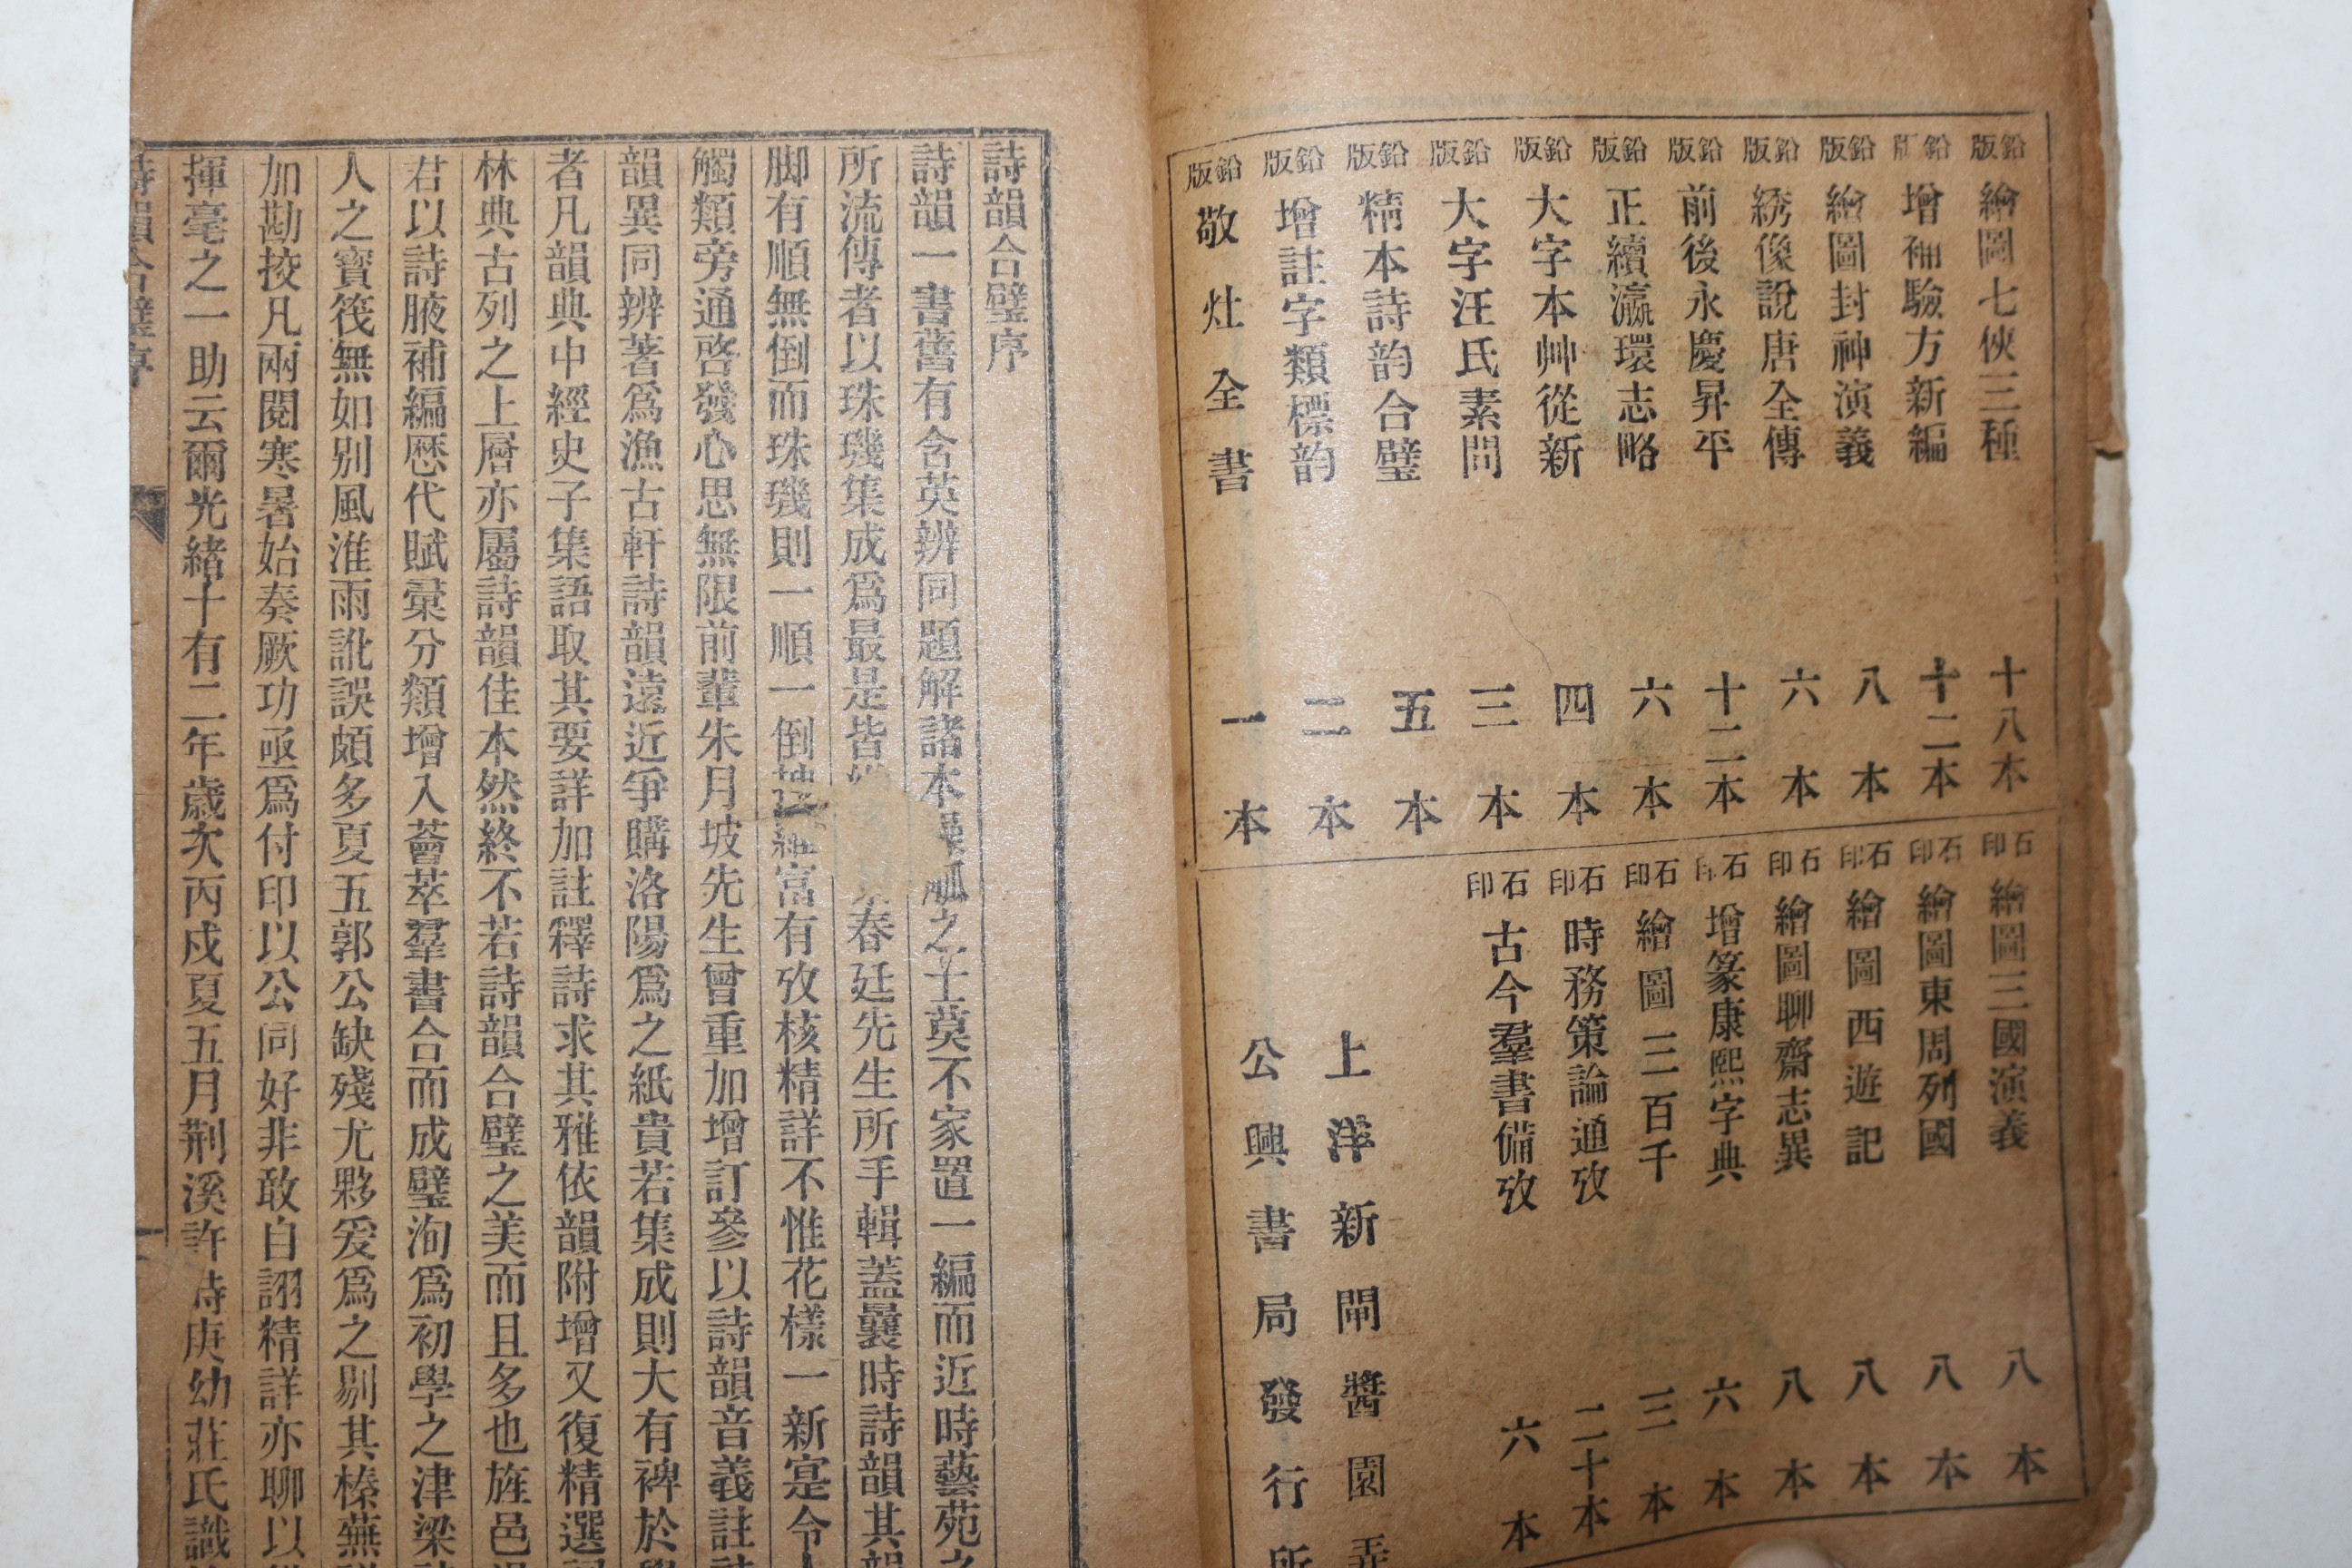 鉛版 繪圖七俠三種 十八本
鉛版 增補驗方新編 十二本
鉛版 繪圖封神演義 八本
鉛版 綉像說唐全傳 六本
鉛版 前後永慶昇平 十二本
鉛版 正續瀛環志略 六本
鉛版 大字本艸從新 四本
鉛版 大字汪氏素問 三本
鉛版 精本詩韵合璧 五本
鉛版 增註字類標韵 二本
鉛版 敬灶全書 一本
石印 繪圖三國演義 八本
石印 繪圖東周列國 八本
石印 繪圖西遊記 八本
石印 繪圖聊齋志異 八本
石印 增篆康熙字典 六本
石印 繪圖三百千 三本
石印 時務策論通攷 二十本
石印 古今羣書備攷 六本
上洋新閘醬園弄
公興書局發行所
詩韻合璧序
詩韻一書舊有含英辨同題解諸本操觚之士莫不家置一編而近時藝苑之
所流傳者以珠璣集成爲最是皆春廷先生所手輯蓋曩時詩韻其韻
脚有順無倒而珠璣則一順一倒富有攷核精詳不惟花樣一新寔令
觸類旁通啓發心思無限前輩朱月坡先生曾重加增訂參以詩韻音義註
韻異同辨著爲漁古軒詩韻遠近爭購洛陽爲之紙貴若集成則大有裨於
者凡韻典中經史子集語取其要詳加註釋詩求其雅依韻附增又復精選
林典古列之上層亦屬詩韻佳本然終不若詩韻合璧之美而且多也旌邑
君以詩腋補編歷代賦彙分類增入薈萃羣書合而成璧洵爲初學之津梁
人之寳筏無如別風淮雨訛誤頗多夏五郭公缺殘尤夥爰爲之剔其榛蕪
加勘挍凡兩閱寒暑始奏厥功亟爲付印以公同好非敢自詡精詳亦聊以
揮毫之一助云爾光緒十有二年歲次丙戍夏五月荆溪許時庚幼莊氏識
詩韻合璧序
一